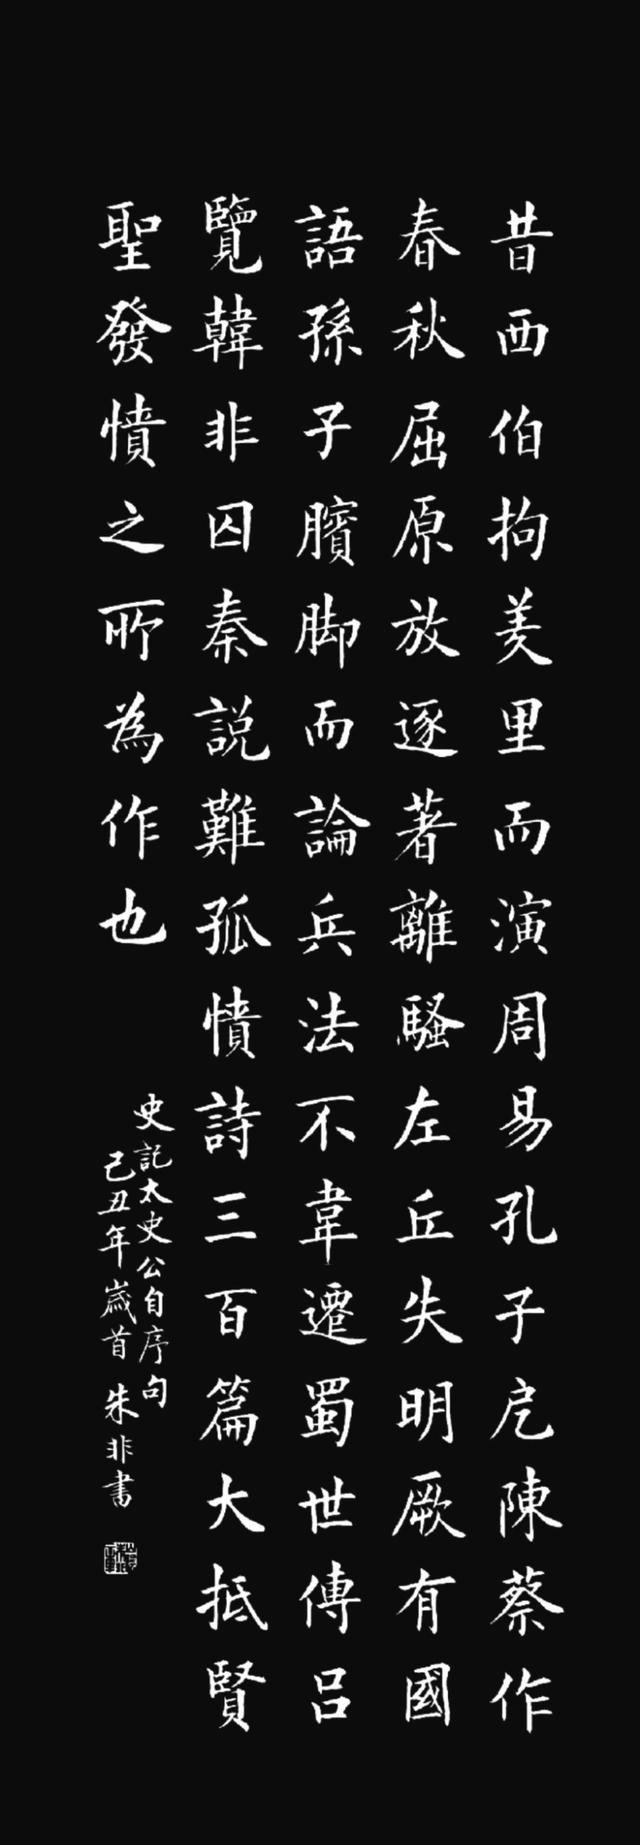 昔西伯拘羑里而演周易孔子戹陳蔡作
春秋屈原放逐著離騷左丘失明厥有國
語孫子臏脚而論兵法不韋遷蜀世傳呂
覽韓非囚秦說難孤憤詩三百篇大抵賢
聖發憤之所為作也
史記太史公自序句
己丑年歲首 朱非書